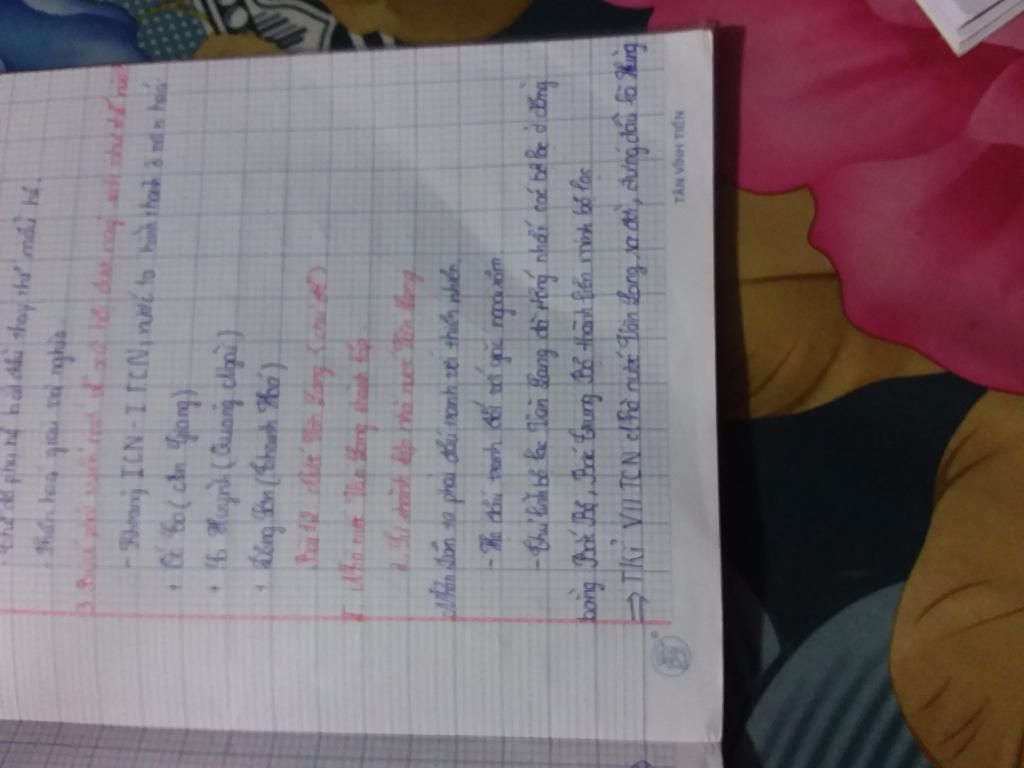 chế độ phụ hệ bắt đầu thay thế mẫu hệ.
- Phân hoá giai cấp nghĩa
3. Bước phát triển mới về xã hội được nảy sinh như thế nào?
- Khoảng ICN - I TCN, nước ta hình thành 3 nền hoá
+ Óc Eo (An Giang)
+ Sa Huỳnh (Quảng Ngãi)
+ Đông Sơn (Thanh Hoá)
Bài 12: Nước Văn Lang (chủ đề)
I Nhà nước Văn Lang thành lập
1. Sự thành lập nhà nước Văn Lang
Nhân dân ta phải đấu tranh với thiên nhiên
- Họ đấu tranh đối với giặc ngoại xâm
- Thủ lĩnh bộ lạc Văn Lang đã thống nhất các bộ lạc ở đồng
bằng Bắc Bộ, Bắc Trung Bộ thành liên minh bộ lạc
=> Thế kỉ VII TCN nhà nước Văn Lang ra đời, đứng đầu là Hùng
TÂN VĨNH TIẾN